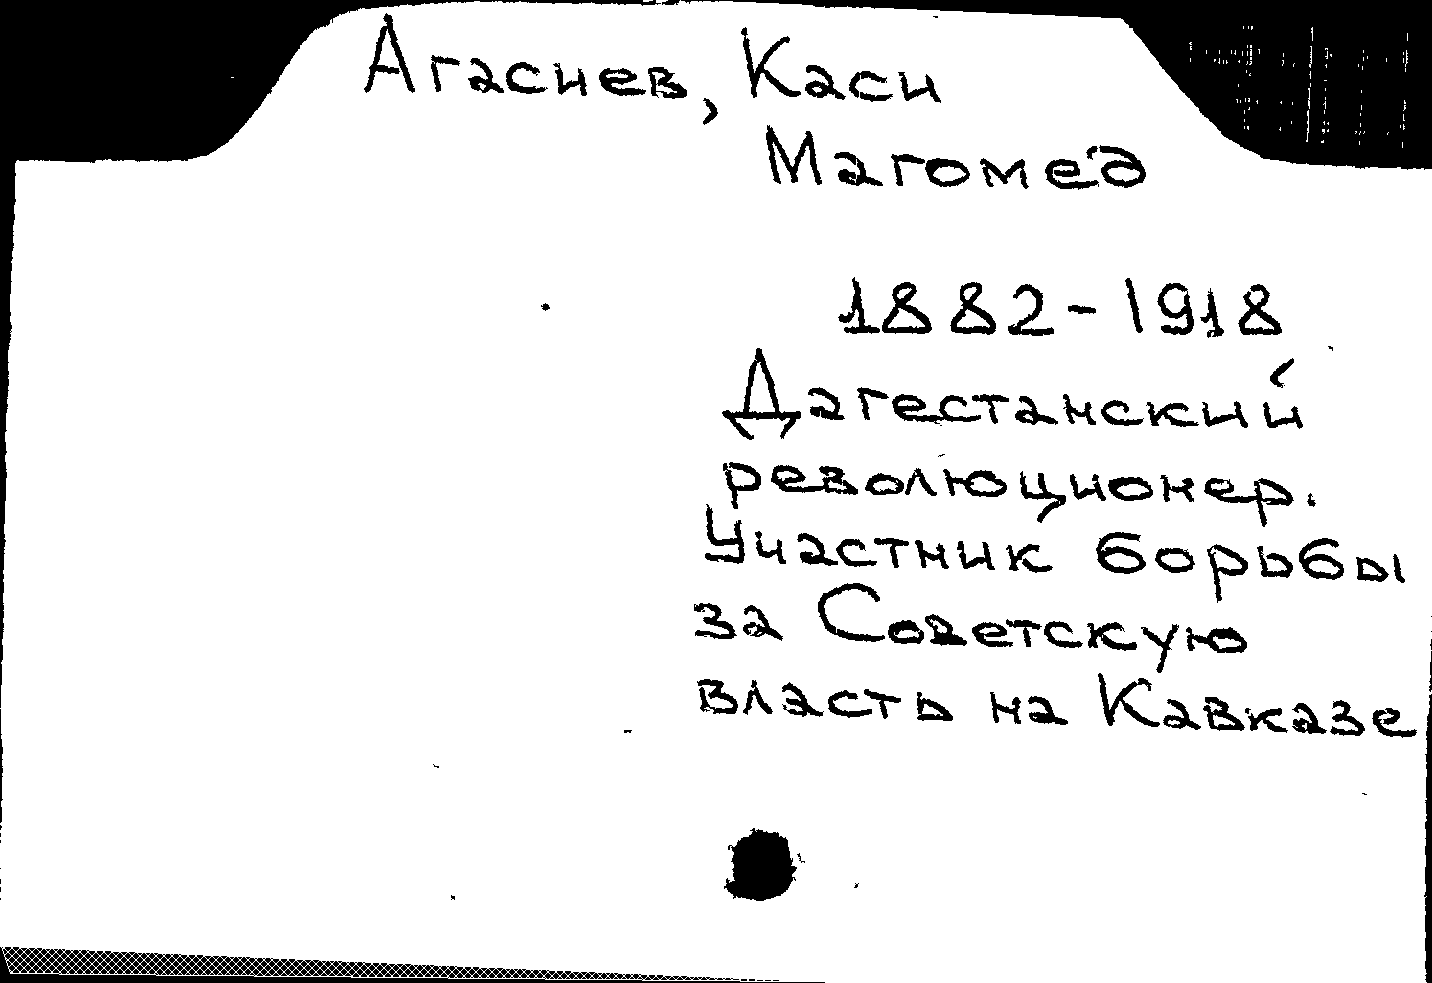 Агасиев, Каси
Магомед
1882-1918
Дагестанский
революционер.
Участник борьбы
за Советскую
власть на Кавказе